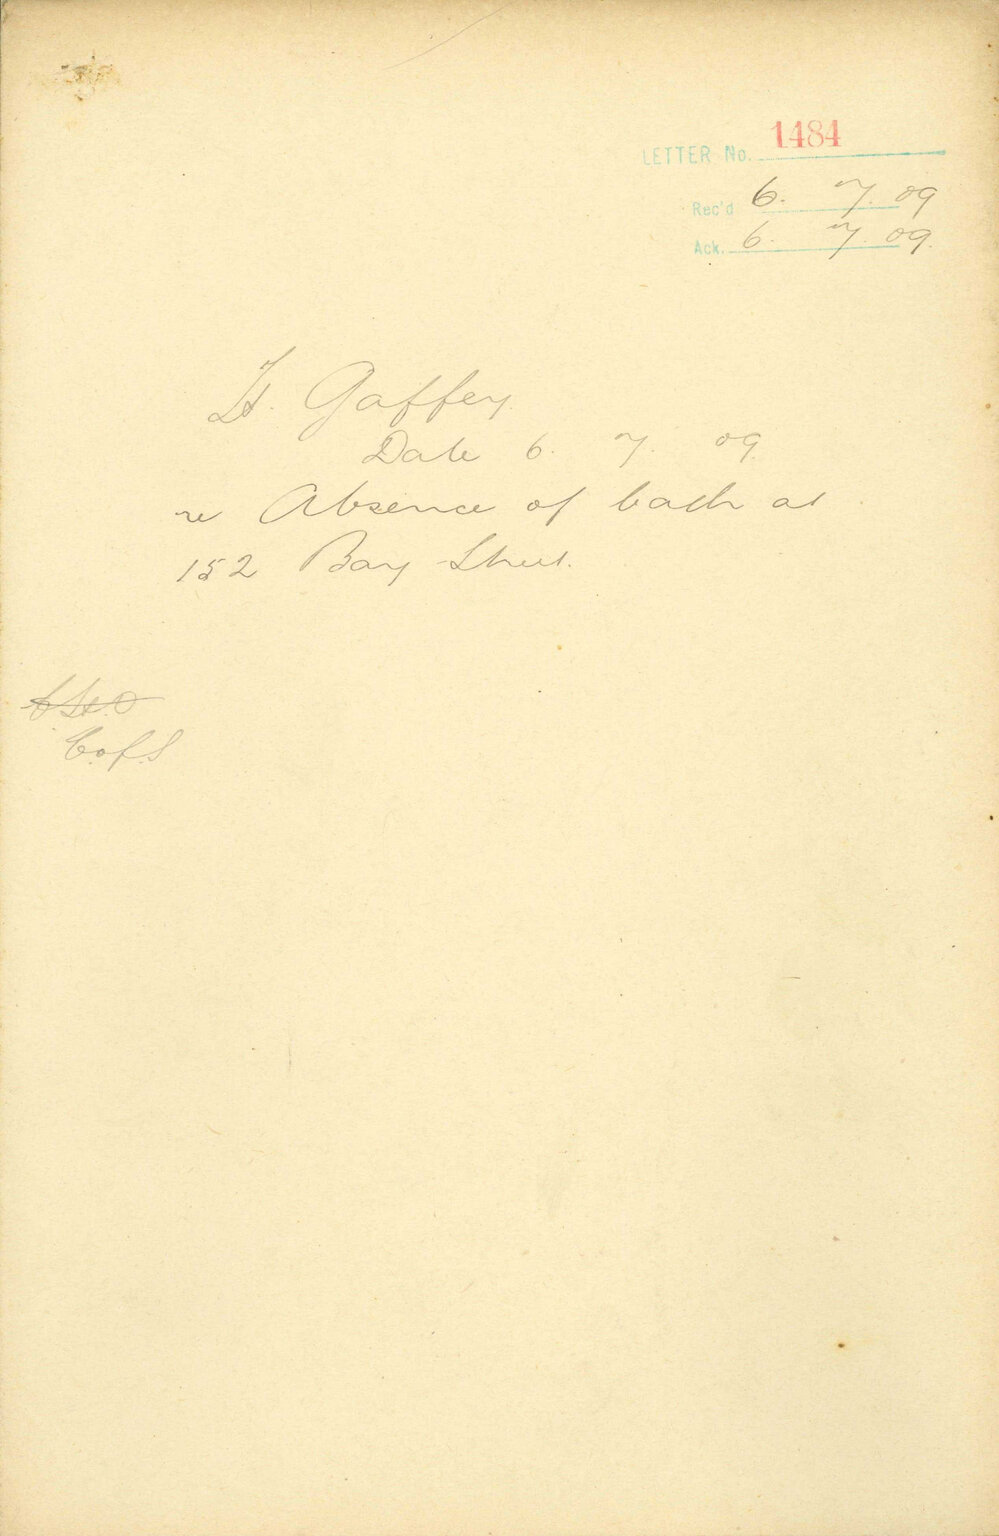 LETTER No. 1484
Rec'd 6. 7. 09
Ack. 6. 7. 09.
H. Gaffey
Date 6. 7. 09
re Absence of bath at
152 Bay Street.
C of S